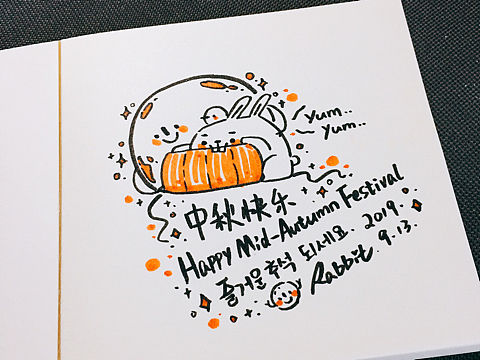 Yum..
Yum..
中秋快乐
Happy Mid-Autumn Festival
즐거운 추석 되세요. 2019.
Rabbit 9.13.